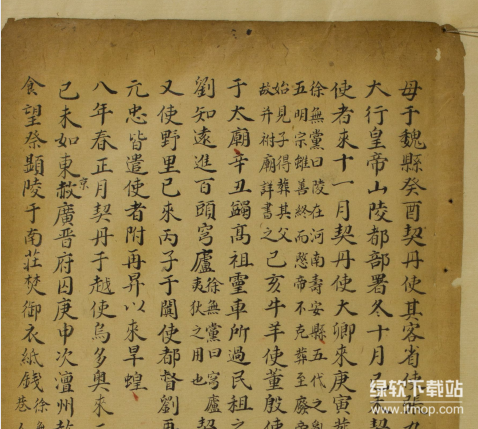 母于魏縣癸酉契丹使其客省使張九
大行皇帝山陵都部署冬十月己未契
使者來十一月契丹使大卿來庚寅葬
徐無黨曰陵在河南壽安縣五代之亂
五明宗雖善終而愍帝不克葬至廢帝
始見子得葬其父
故并祔廟詳書之
己亥牛羊使董殷使
于太廟辛丑蠲高祖靈車所過民租之
劉知遠進百頭穹廬
徐無黨曰穹廬
夷狄之用也
契
又使野里巳來丙子于闐使都督劉再
元忠皆遣使者附再昇以來旱蝗
八年春正月契丹于越使烏多奧來
己未如東京赦廣晉府囚庚申次澶州赦
食望祭顯陵于南莊焚御衣紙錢
徐無
巷人
绿软下载站
www.itmop.com